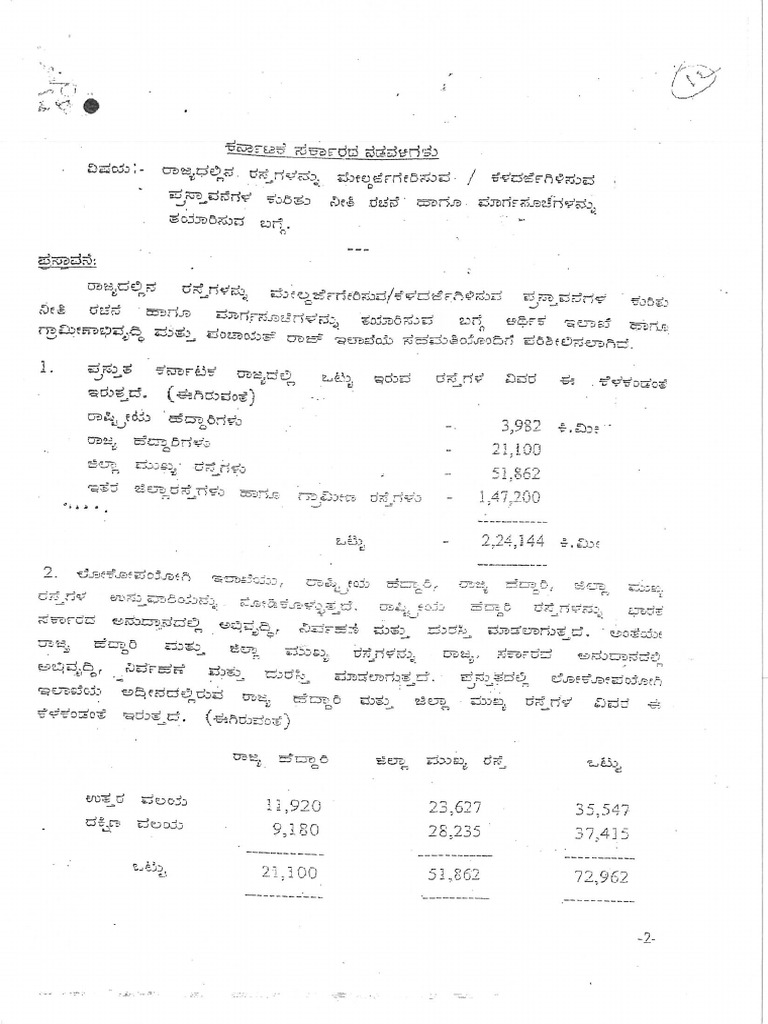 12
ಕರ್ನಾಟಕ ಸರ್ಕಾರದ ನಡವಳಿಗಳು
ವಿಷಯ:- ರಾಜ್ಯದಲ್ಲಿನ ರಸ್ತೆಗಳನ್ನು ಮೇಲ್ದರ್ಜೆಗೇರಿಸುವ / ಕೆಳದರ್ಜೆಗಿಳಿಸುವ
ಪ್ರಸ್ತಾವನೆಗಳ ಕುರಿತು ನೀತಿ ರಚನೆ ಹಾಗೂ ಮಾರ್ಗಸೂಚಿಗಳನ್ನು
ತಯಾರಿಸುವ ಬಗ್ಗೆ.
---
ಪ್ರಸ್ತಾವನೆ:
ರಾಜ್ಯದಲ್ಲಿನ ರಸ್ತೆಗಳನ್ನು ಮೇಲ್ದರ್ಜೆಗೇರಿಸುವ/ಕೆಳದರ್ಜೆಗಿಳಿಸುವ ಪ್ರಸ್ತಾವನೆಗಳ ಕುರಿತು
ನೀತಿ ರಚನೆ ಹಾಗೂ ಮಾರ್ಗಸೂಚಿಗಳನ್ನು ತಯಾರಿಸುವ ಬಗ್ಗೆ ಆರ್ಥಿಕ ಇಲಾಖೆ ಹಾಗೂ
ಗ್ರಾಮೀಣಾಭಿವೃದ್ಧಿ ಮತ್ತು ಪಂಚಾಯತ್ ರಾಜ್ ಇಲಾಖೆಯ ಸಹಮತಿಯೊಂದಿಗೆ ಪರಿಶೀಲಿಸಲಾಗಿದೆ.
1. ಪ್ರಸ್ತುತ ಕರ್ನಾಟಕ ರಾಜ್ಯದಲ್ಲಿ ಒಟ್ಟು ಇರುವ ರಸ್ತೆಗಳ ವಿವರ ಈ ಕೆಳಕಂಡಂತೆ
ಇರುತ್ತದೆ. (ಈಗಿರುವಂತೆ)
ರಾಷ್ಟ್ರೀಯ ಹೆದ್ದಾರಿಗಳು - 3,982 ಕಿ.ಮೀ
ರಾಜ್ಯ ಹೆದ್ದಾರಿಗಳು - 21,100
ಜಿಲ್ಲಾ ಮುಖ್ಯ ರಸ್ತೆಗಳು - 51,862
ಇತರೆ ಜಿಲ್ಲಾ ರಸ್ತೆಗಳು ಹಾಗೂ ಗ್ರಾಮೀಣ ರಸ್ತೆಗಳು - 1,47,200
ಒಟ್ಟು - 2,24,144 ಕಿ.ಮೀ
2. ಲೋಕೋಪಯೋಗಿ ಇಲಾಖೆಯು, ರಾಷ್ಟ್ರೀಯ ಹೆದ್ದಾರಿ, ರಾಜ್ಯ ಹೆದ್ದಾರಿ, ಜಿಲ್ಲಾ ಮುಖ್ಯ
ರಸ್ತೆಗಳ ಉಸ್ತುವಾರಿಯನ್ನು ನೋಡಿಕೊಳ್ಳುತ್ತದೆ. ರಾಷ್ಟ್ರೀಯ ಹೆದ್ದಾರಿ ರಸ್ತೆಗಳನ್ನು ಭಾರತ
ಸರ್ಕಾರದ ಅನುದಾನದಲ್ಲಿ ಅಭಿವೃದ್ಧಿ, ನಿರ್ವಹಣೆ ಮತ್ತು ದುರಸ್ತಿ ಮಾಡಲಾಗುತ್ತದೆ. ಅಂತೆಯೇ
ರಾಜ್ಯ ಹೆದ್ದಾರಿ ಮತ್ತು ಜಿಲ್ಲಾ ಮುಖ್ಯ ರಸ್ತೆಗಳನ್ನು ರಾಜ್ಯ ಸರ್ಕಾರದ ಅನುದಾನದಲ್ಲಿ
ಅಭಿವೃದ್ಧಿ, ನಿರ್ವಹಣೆ ಮತ್ತು ದುರಸ್ತಿ ಮಾಡಲಾಗುತ್ತದೆ. ಪ್ರಸ್ತುತದಲ್ಲಿ ಲೋಕೋಪಯೋಗಿ
ಇಲಾಖೆಯ ಅಧೀನದಲ್ಲಿರುವ ರಾಜ್ಯ ಹೆದ್ದಾರಿ ಮತ್ತು ಜಿಲ್ಲಾ ಮುಖ್ಯ ರಸ್ತೆಗಳ ವಿವರ ಈ
ಕೆಳಕಂಡಂತೆ ಇರುತ್ತದೆ. (ಈಗಿರುವಂತೆ)
ರಾಜ್ಯ ಹೆದ್ದಾರಿ ಜಿಲ್ಲಾ ಮುಖ್ಯ ರಸ್ತೆ ಒಟ್ಟು
ಉತ್ತರ ವಲಯ 11,920 23,627 35,547
ದಕ್ಷಿಣ ವಲಯ 9,180 28,235 37,415
ಒಟ್ಟು 21,100 51,862 72,962
-2-